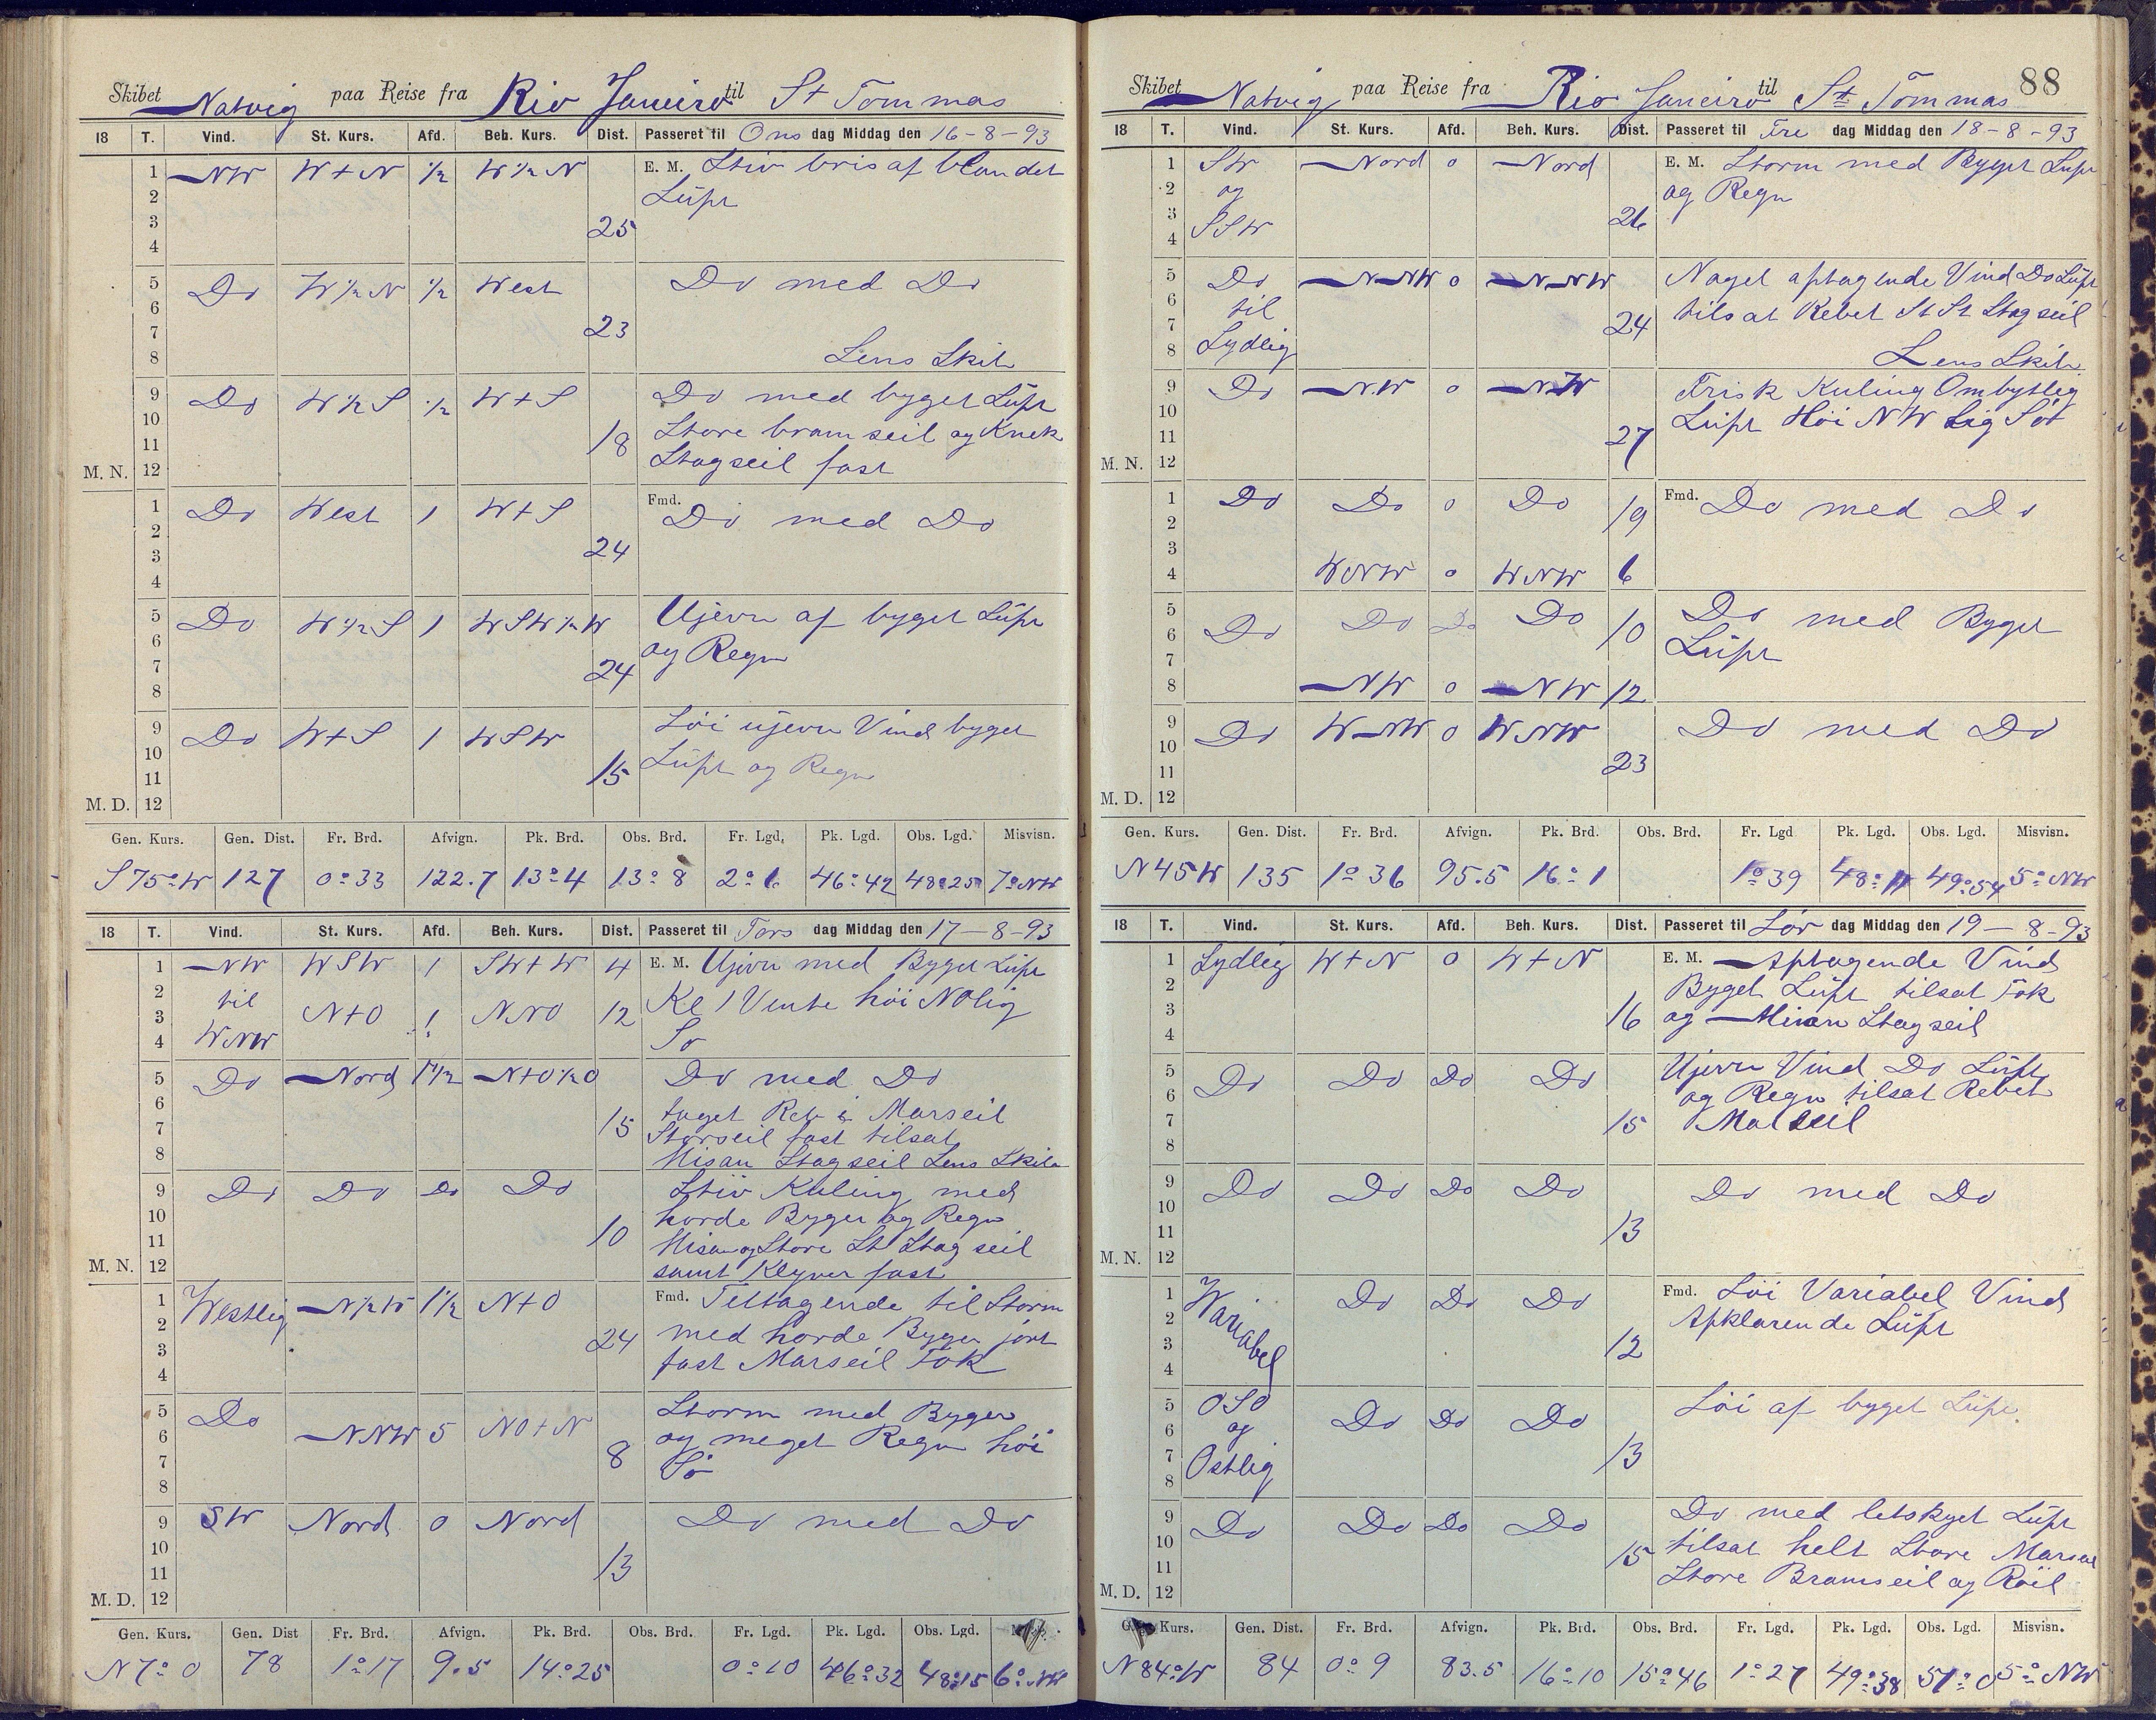 Skibet Natvig paa Reise fra Rio Janeiro til St Tommas
18 T. Vind. St. Kurs. Afd. Beh. Kurs. Dist. Passeret til Ons dag Middag den 16-8-93
1 NW W+N ½ W½N E. M. Stiv bris af blandet
2 Lüft
3 25
4
5 Do W½N ½ West Do med Do
6
7 23
8 Lens Skib
9 Do W½S ½ W+S Do med byget Lüft
10 Store bramseil og Knek
11 18 Stagseil fast
M. N. 12
1 Do West 1 W+S Fmd. Do med Do
2
3 24
4
5 Do W½S 1 WSW½W Ujevn af byget Lüft
6 og Regn
7 24
8
9 Do W+S 1 WSW Löi ujevn Vind byget
10 Lüft og Regn
11 15
M. D. 12
Gen. Kurs. Gen. Dist. Fr. Brd. Afvign. Pk. Brd. Obs. Brd. Fr. Lgd. Pk. Lgd. Obs. Lgd. Misvisn.
S75°W 127 0°33 122.7 13°4 13°8 2°6 46°42 48°25 7°NW
18 T. Vind. St. Kurs. Afd. Beh. Kurs. Dist. Passeret til Tors dag Middag den 17-8-93
1 NW WSW 1 SW+W 4 E. M. Ujevn med Byget Lüft
2 til
3 N+O 1 NNO 12 Kl 1 Vente höi NOlig
4 WNW Sö
5 Do Nord 1½ N+O½O Do med Do
6 taget Reb i Marseil
7 15 Storseil fast tilsat
8 Misan Stagseil Lens Skib
9 Do Do Do Do Stiv Kuling med
10 horde Byger og Regn
11 10 Misan og Store St Stagseil
M. N. 12 samt Klyver fast
1 Westlig N½W 1½ N+O Fmd. Tiltagende til Storm
2 24 med horde Byger jort
3 fast Marseil Fok
4
5 Do NNW 5 NO+N Storm med Byger
6 og meget Regn höi
7 8 Sö
8
9 SW Nord 0 Nord Do med Do
10
11 13
M. D. 12
Gen. Kurs. Gen. Dist Fr. Brd. Afvign. Pk. Brd. Obs. Brd. Fr. Lgd. Pk. Lgd. Obs. Lgd.
N7°O 78 1°17 9.5 14°25 0°10 46°32 48°15 6°NW
88
Skibet Natvig paa Reise fra Rio Janeiro til St Tommas
18 T. Vind. St. Kurs. Afd. Beh. Kurs. Dist. Passeret til Fre dag Middag den 18-8-93
1 SW Nord 0 Nord E. M. Storm med Byget Lüft
2 og og Regn
3 SSW 26
4
5 Do NNW 0 NNW Noget aftagende Vind Do Lüft
6 til
7 24 tilsat Rebet St St Stagseil
8 Sydlig Lens Skib
9 Do NW 0 NW Frisk Kuling Ombytlig
10 Lüft Höi NWlig Sö
11 27
M. N. 12
1 Do Do 0 Do 19 Fmd. Do med Do
2
3
4 WNW 0 WNW 6
5 Do Do Do Do 10 Do med Byget
6 Lüft
7
8 NW 0 NW 12
9 Do WNW 0 WNW Do med Do
10
11 23
M. D. 12
Gen. Kurs. Gen. Dist. Fr. Brd. Afvign. Pk. Brd. Obs. Brd. Fr. Lgd Pk. Lgd. Obs. Lgd. Misvisn.
N45W 135 1°36 95.5 16°1 1°39 48°11 49°54 5°NW
18 T. Vind. St. Kurs. Afd. Beh. Kurs. Dist. Passeret til Lör dag Middag den 19-8-93
1 Sydlig W+N 0 W+N E. M. Aftagende Vind
2 Byget Lüft tilsat Fok
3 16 og Misan Stagseil
4
5 Do Do Do Do Ujevn Vind Do Lüft
6 og Regn tilsat Rebet
7 15 Marseil
8
9 Do Do Do Do Do med Do
10
11 13
M. N. 12
1 Variabel Do Do Do Fmd. Löi Variabel Vind
2 Apklarende Lüft
3 12
4
5 OSO Do Do Do Löi af byget Lüft
6 og
7 13
8 Ostlig
9 Do Do Do Do Do med letskyet Lüft
10 tilsat helt Store Marseil
11 15 Store Bramseil og Röil
M. D. 12
Kurs. Gen. Dist. Fr. Brd. Afvign. Pk. Brd. Obs. Brd. Fr. Lgd. Pk. Lgd. Obs. Lgd. Misvisn.
N84°W 84 0°9 83.5 16°10 15°46 1°27 49°38 51°0 5°NW